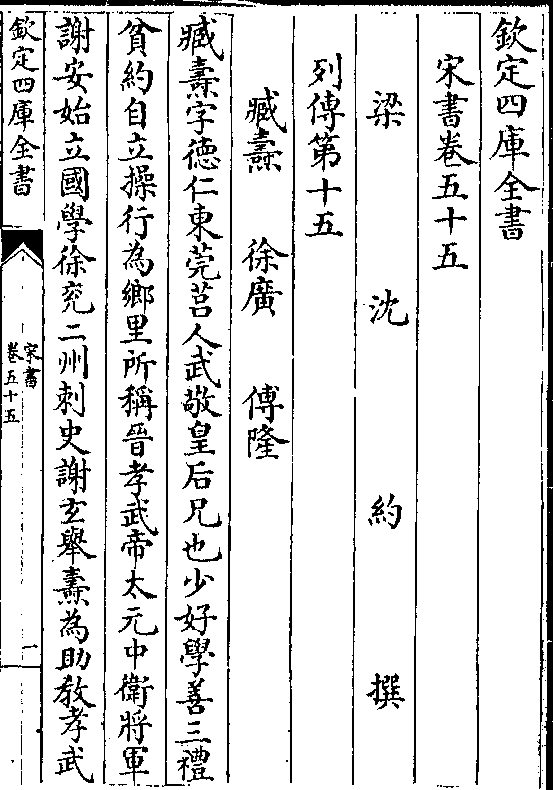 欽定四庫全書
宋書卷五十五
梁沈約撰
列傳第十五
臧燾 徐廣 傅隆
臧燾字德仁東莞莒人武敬皇后兄也少好學善三禮
貧約自立操行為鄉里所稱晉孝武帝太元中衛將軍
謝安始立國學徐兖二州刺史謝玄舉燾為助教孝武
欽定四庫全書
宋書
卷五十五
一